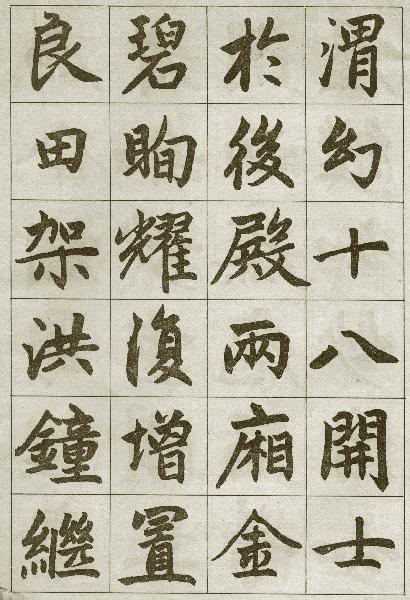 渭幻十八開士
於後殿兩廂金
碧眴耀復增置
良田架洪鐘繼